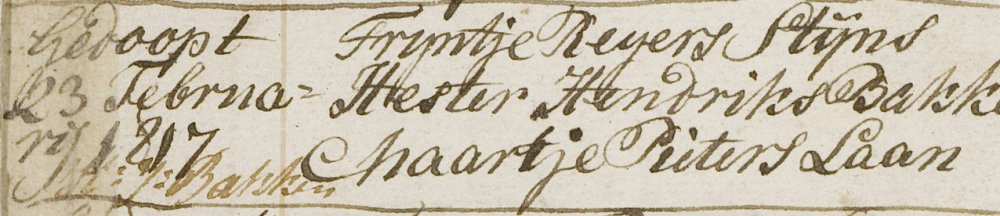 Gedoopt Trijntje Reyers Stijns
23 Februa= Hester Hendriks Bakk
rij 1817 Maartje Pieters Laan
Bakker